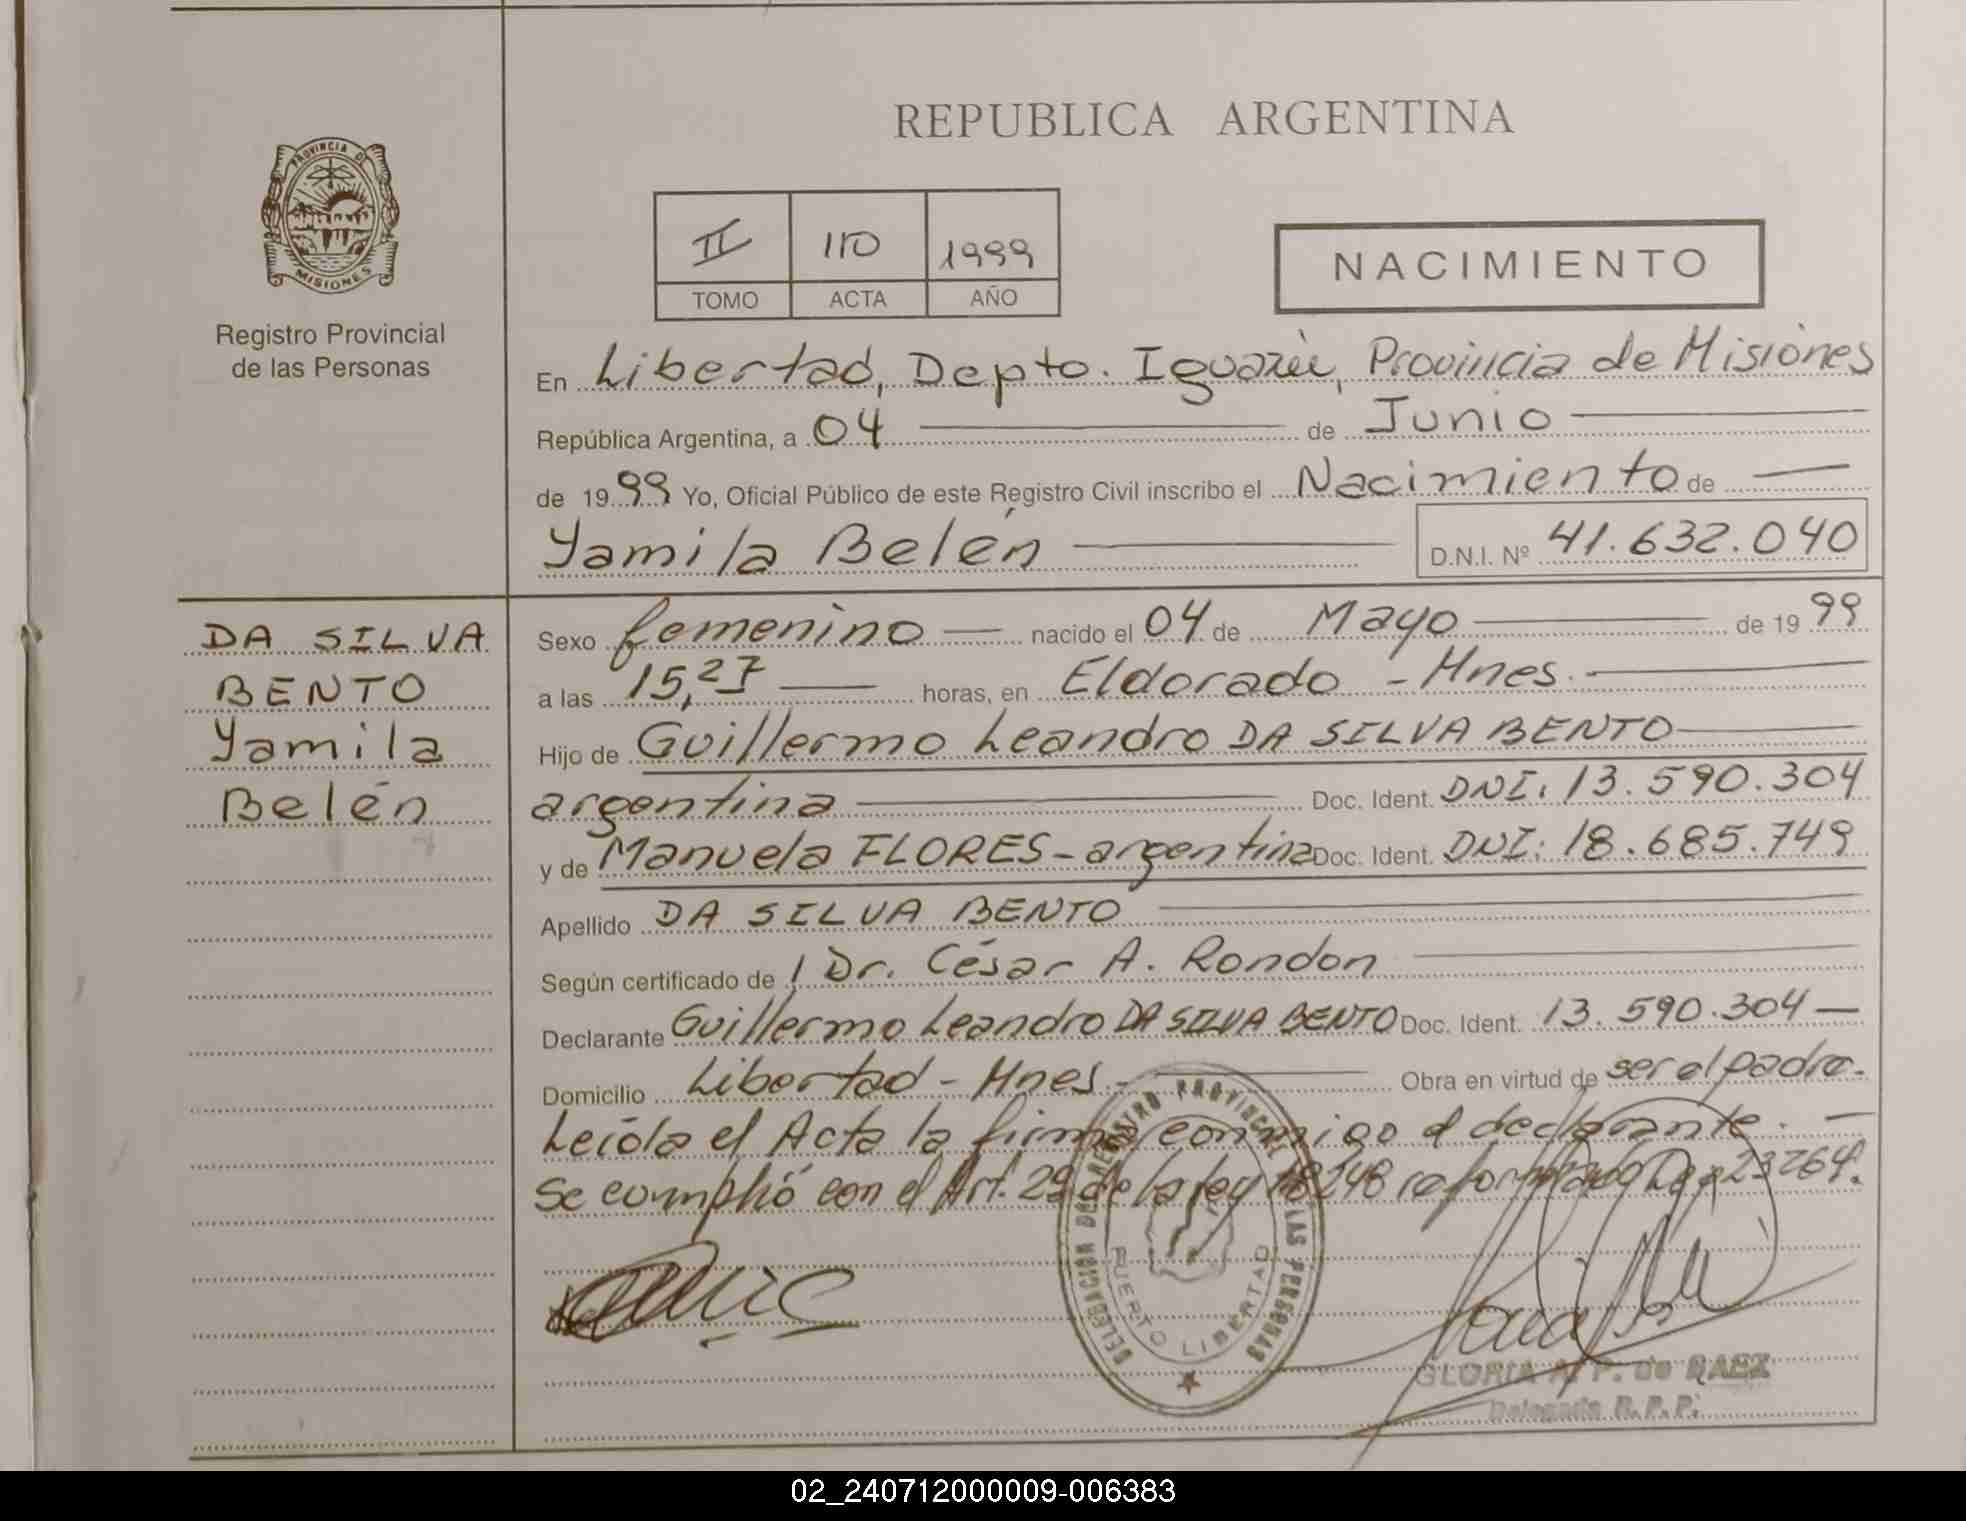 REPUBLICA ARGENTINA
PROVINCIA DE
MISIONES
Registro Provincial
de las Personas
II 110 1999
TOMO ACTA AÑO
NACIMIENTO
En Libertad, Depto. Iguazú, Provincia de Misiones
República Argentina, a 04 de Junio
de 1999 Yo, Oficial Público de este Registro Civil inscribo el Nacimiento de
Yamila Belén D.N.I. Nº 41.632.040
DA SILVA
BENTO
Yamila
Belén
Sexo femenino nacido el 04 de Mayo de 1999
a las 15,27 horas, en Eldorado - Mnes.
Hijo de Guillermo Leandro DA SILVA BENTO
argentina Doc. Ident. DNI: 13.590.304
y de Manuela FLORES - argentina Doc. Ident. DNI: 18.685.749
Apellido DA SILVA BENTO
Según certificado de Dr. César A. Rondon
Declarante Guillermo Leandro DA SILVA BENTO Doc. Ident. 13.590.304
Domicilio Libertad - Mnes. - Obra en virtud de ser el padre.
Leída el Acta la firma conmigo el declarante.
Se cumplió con el Art. 29 de la ley 18248 reformado 23264.
DELEGACION DEL REGISTRO PROVINCIAL DE LAS PERSONAS
PUERTO LIBERTAD
GLORIA A. P. de BAEZ
Delegada R.P.P.
02_240712000009-006383